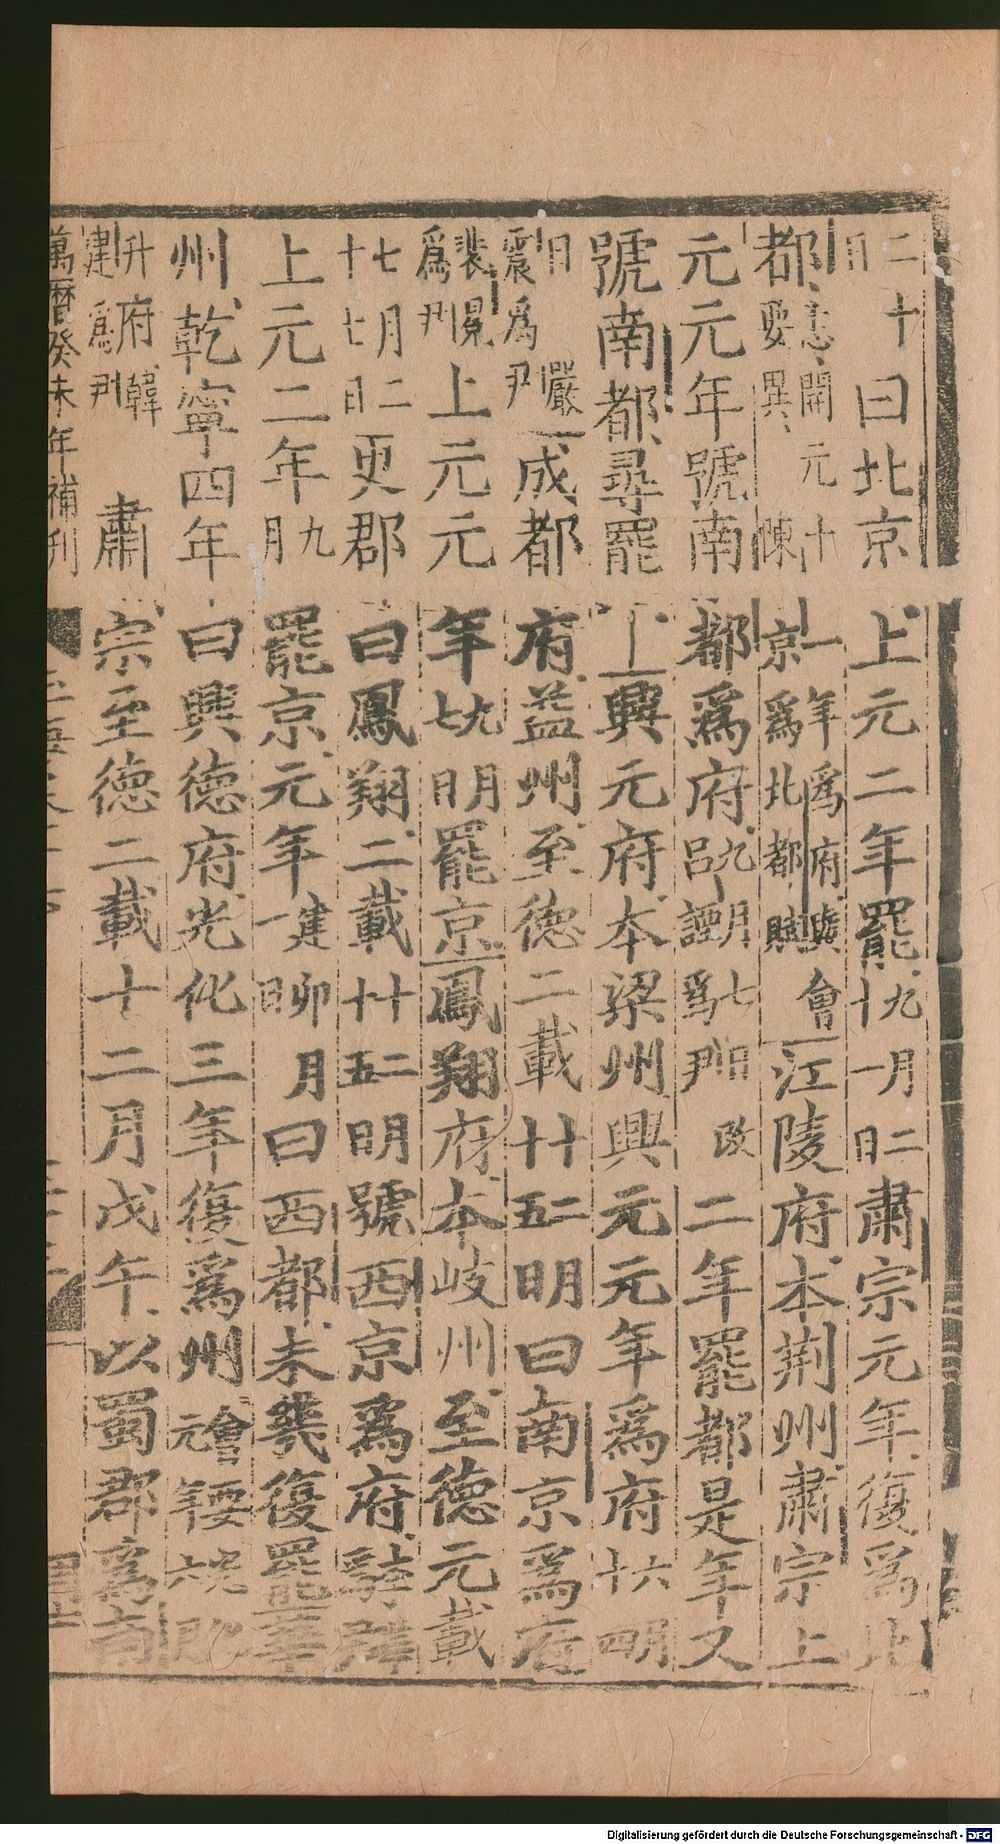 二十日曰北京上元二年罷九月二十一日肅宗元年復爲北
都開元十一年爲府會要異陳京爲北都賦江陵府本荆州肅宗上
元元年號南都爲府九月七日呂諲爲尹二年罷都是年又
號南都尋罷興元府本梁州興元元年爲府六月十四
日嚴震爲尹成都府益州至德二載十二月十五日曰南京爲府
裴冕爲尹上元元年九月七日罷京鳳翔府本岐州至德元載
七月二十七日更郡曰鳳翔二載十二月十五日號西京爲府
上元二年九月罷京元年建卯月一日曰西都未幾復罷華
州乾寧四年曰興德府光化三年復爲州
升府韓建爲尹肅宗至德二載十二月戊午以蜀郡爲南
萬曆癸未年補刊
Digitalisierung gefördert durch die Deutsche Forschungsgemeinschaft - DFG